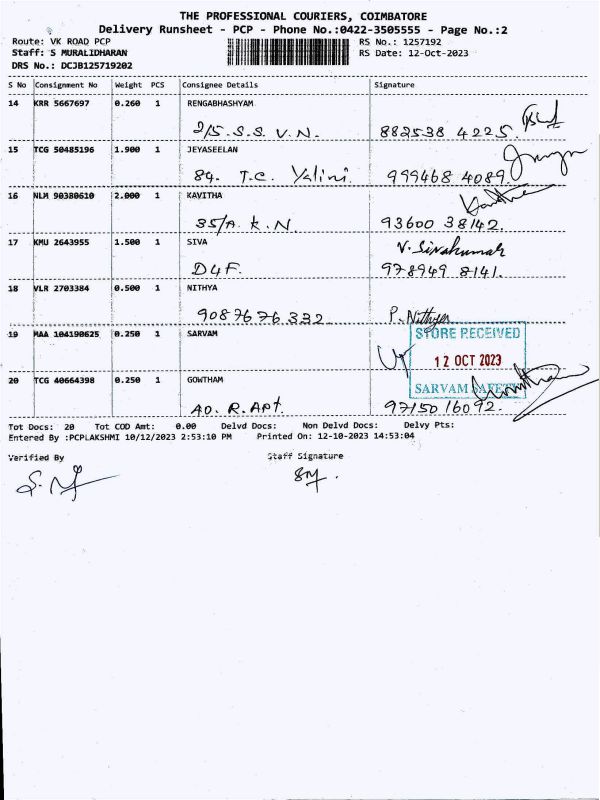 THE PROFESSIONAL COURIERS, COIMBATORE
Delivery Runsheet - PCP - Phone No.:0422-3505555 - Page No.:2
Route: VK ROAD PCP RS No.: 1257192
Staff: S MURALIDHARAN RS Date: 12-Oct-2023
DRS No.: DCJB125719202
S No Consignment No Weight PCS Consignee Details Signature
14 KRR 5667697 0.260 1 RENGABHASHYAM
2/5. S.S. V.N. 882538 4225.
15 TCG 50485196 1.900 1 JEYASEELAN
84. T.C. Yalini. 999468 4089.
16 NLM 90380610 2.000 1 KAVITHA
35/A. K.N. 93600 38142.
17 KMU 2643955 1.500 1 SIVA V. Sivakumar
D4F. 978949 8141.
18 VLR 2703384 0.500 1 NITHYA
9087676332 P. Nithya
19 MAA 104190625 0.250 1 SARVAM STORE RECEIVED
12 OCT 2023
20 TCG 40664398 0.250 1 GOWTHAM SARVAM SAFETY
40. R. Apt. 97150 16092.
Tot Docs: 20 Tot COD Amt: 0.00 Delvd Docs: Non Delvd Docs: Delvy Pts:
Entered By :PCPLAKSHMI 10/12/2023 2:53:10 PM Printed On: 12-10-2023 14:53:04
Verified By Staff Signature